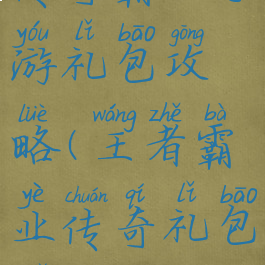 yóu lǐ bāo gōng
游礼包攻
lüè wáng zhě bà
略(王者霸
yè chuán qí lǐ bāo
业传奇礼包